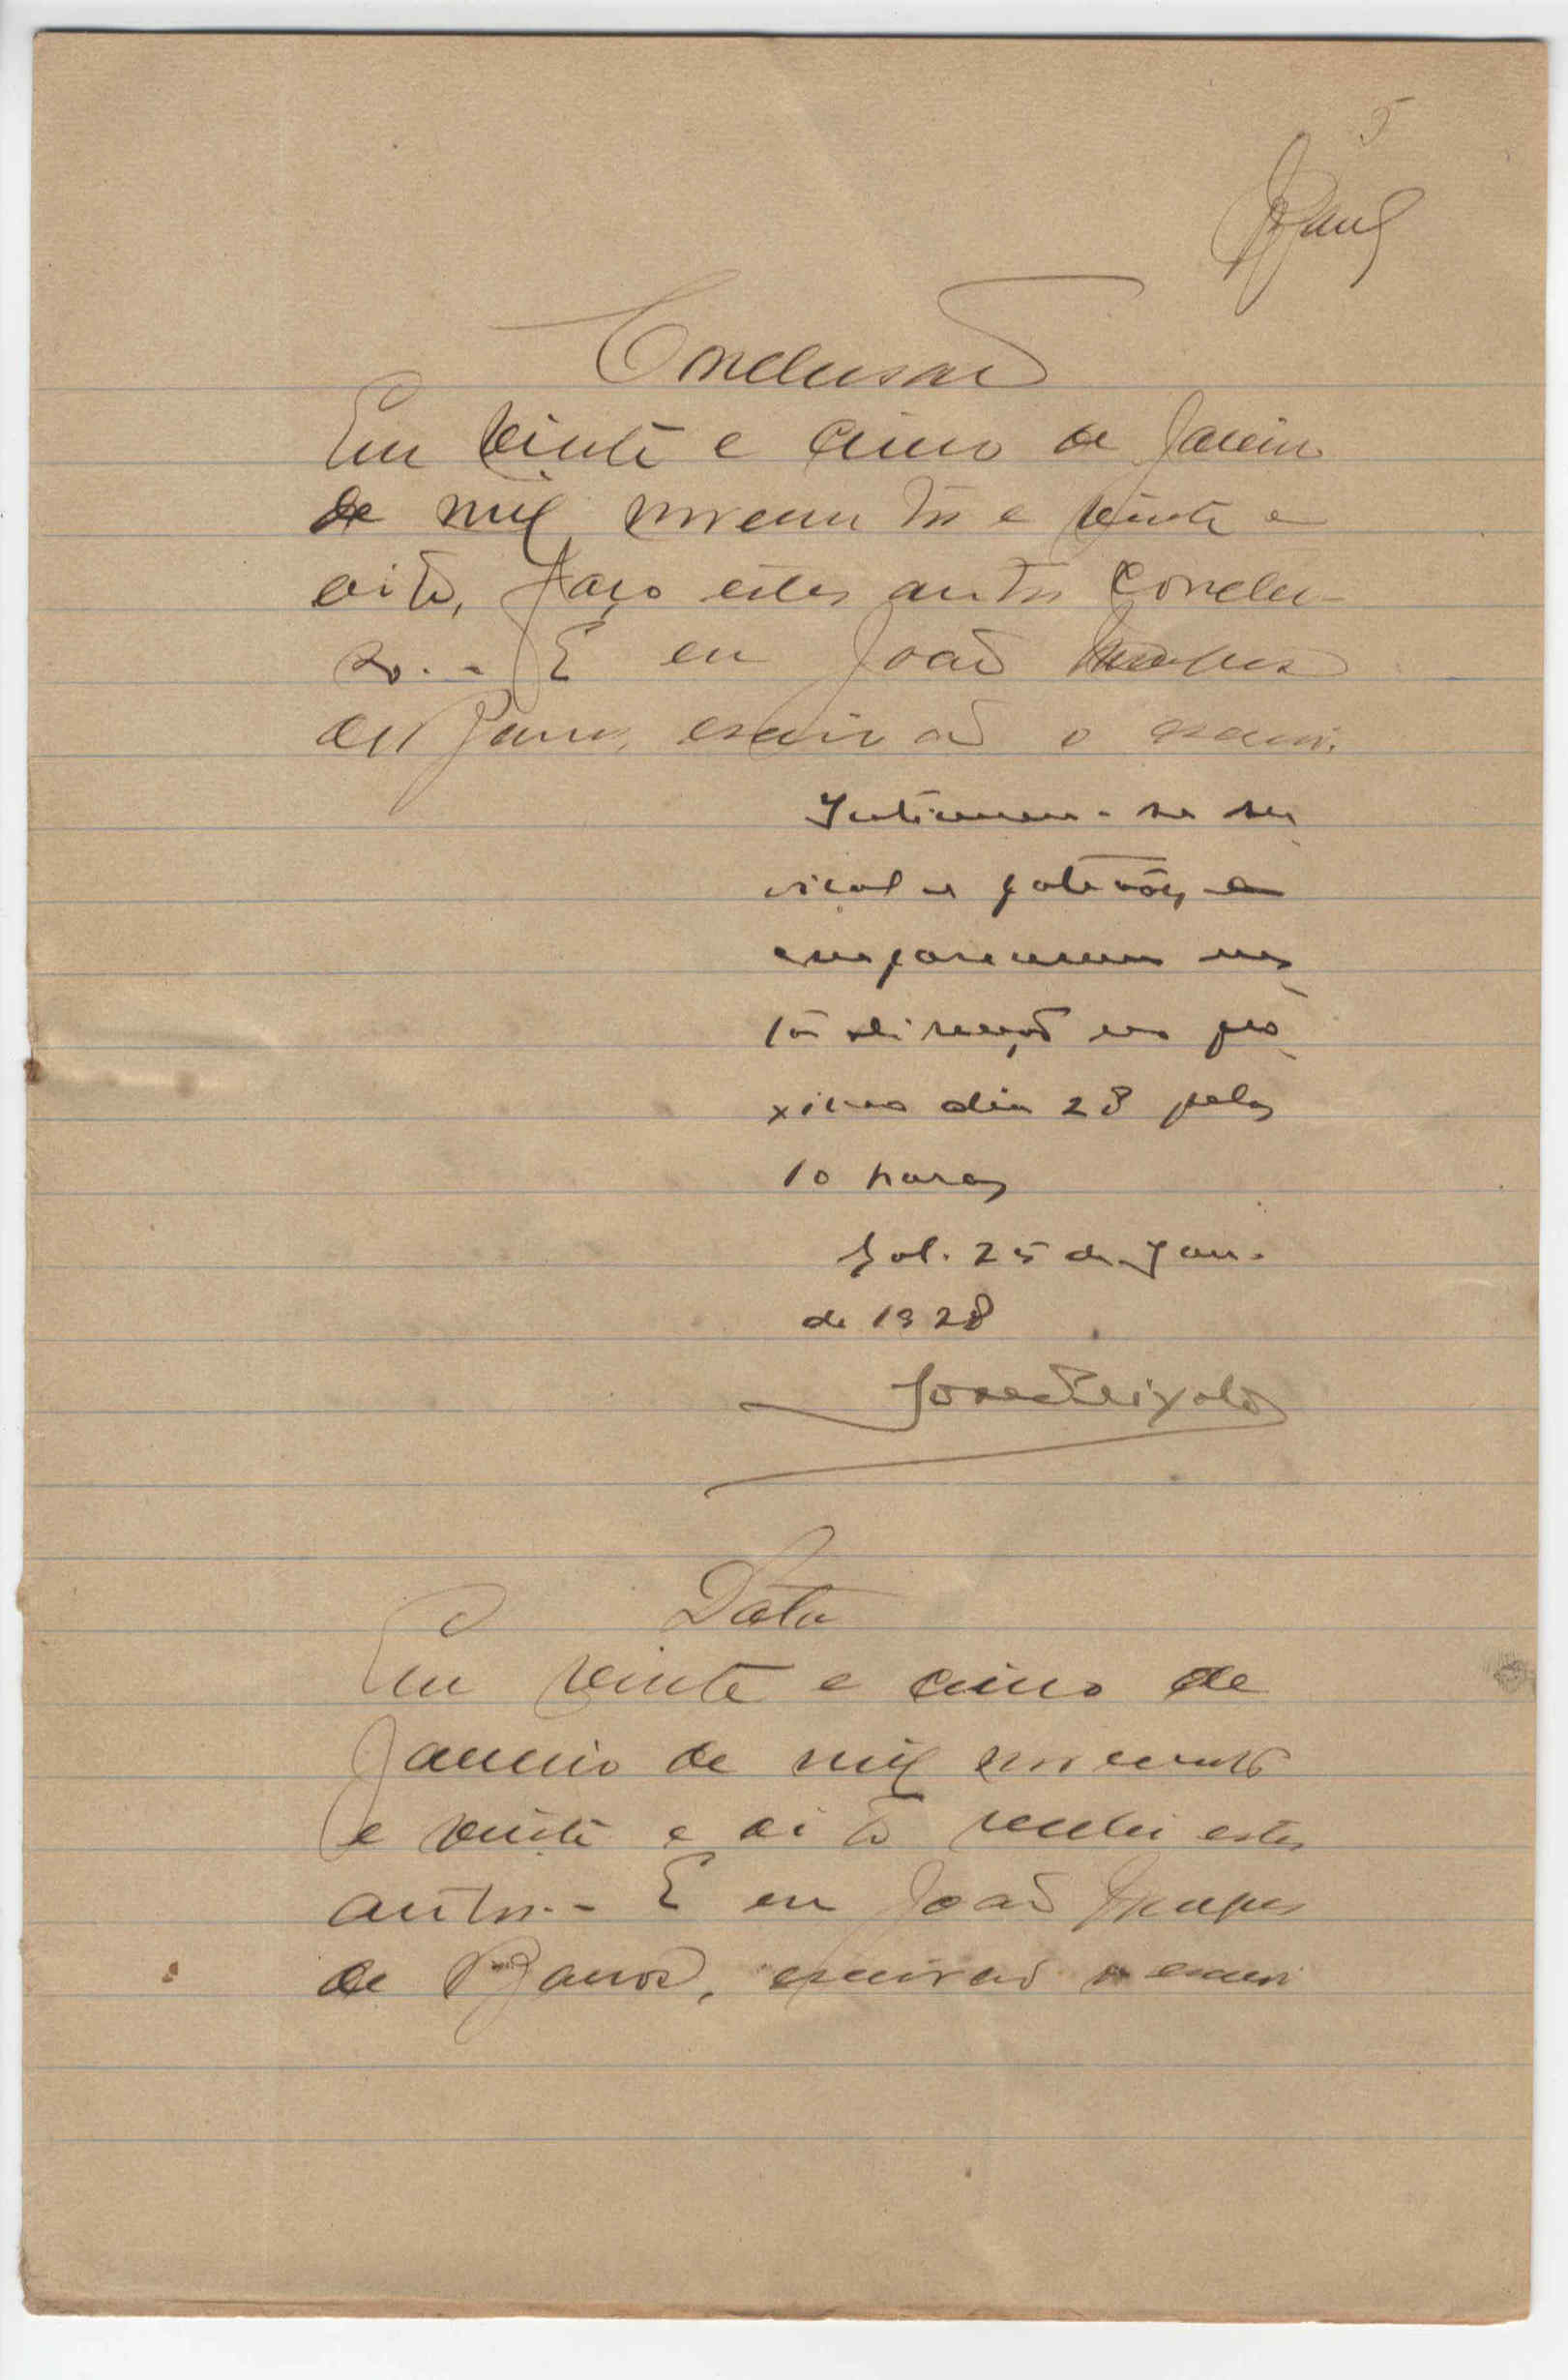 5
Conclusaõ
Em vinte e cinco de Janeiro
de mil novecentos e vinte e
oito, faço estes autos conclu-
so.- E eu João
de Barros, escrivaõ o escrevi.
Intimem-se
e patrões a
comparecerem nes
ta direcçaõ no pro
ximo dia 28 pelas
10 horas
25 de Jan.
de 1928
José Peixoto
Data
Em vinte e cinco de
Janeiro de mil novecentos
e vinte e oito recebi estes
autos.- E eu João
de Barros, escrivaõ o escrevi